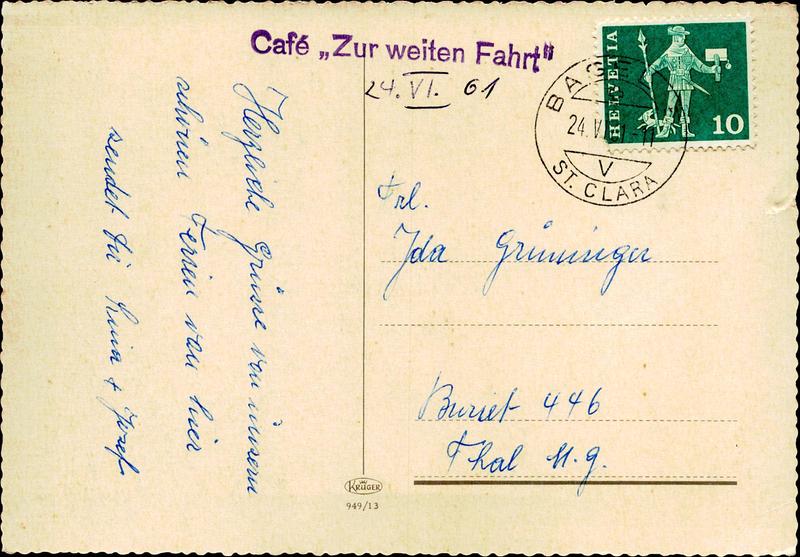 Café „Zur weiten Fahrt"
24. VI. 61
HELVETIA
10
BASEL
24. VI. 61-11
V
ST. CLARA
Herzliche Grüsse von unsern
schönen Ferien von hier
sendet Dir & Josef
Frl.
Ida Grüninger
Buriet 446
Thal
KRÜGER
949/13